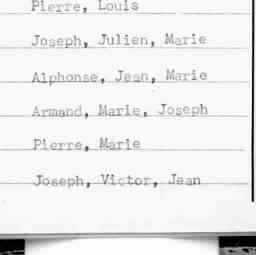 Pierre, Louis
Joseph, Julien, Marie
Alphonse, Jean, Marie
Armand, Marie, Joseph
Pierre, Marie
Joseph, Victor, Jean